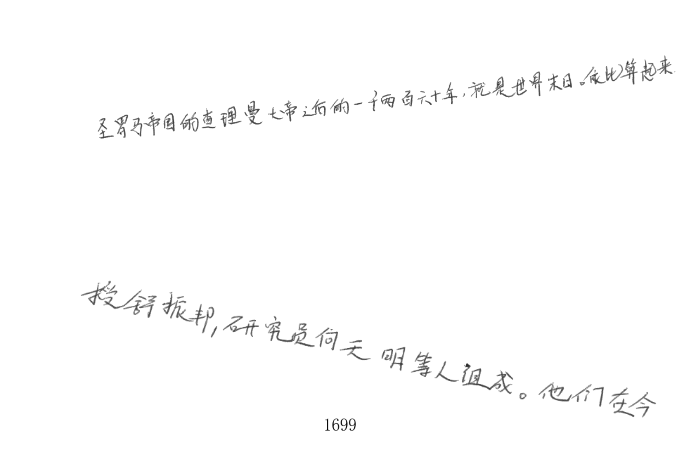 圣罗马帝国的查理曼大帝之后的一千两百六十年，就是世界末日。依此算起来
授舒振邦，研究员何天明等人组成。他们在今
1699